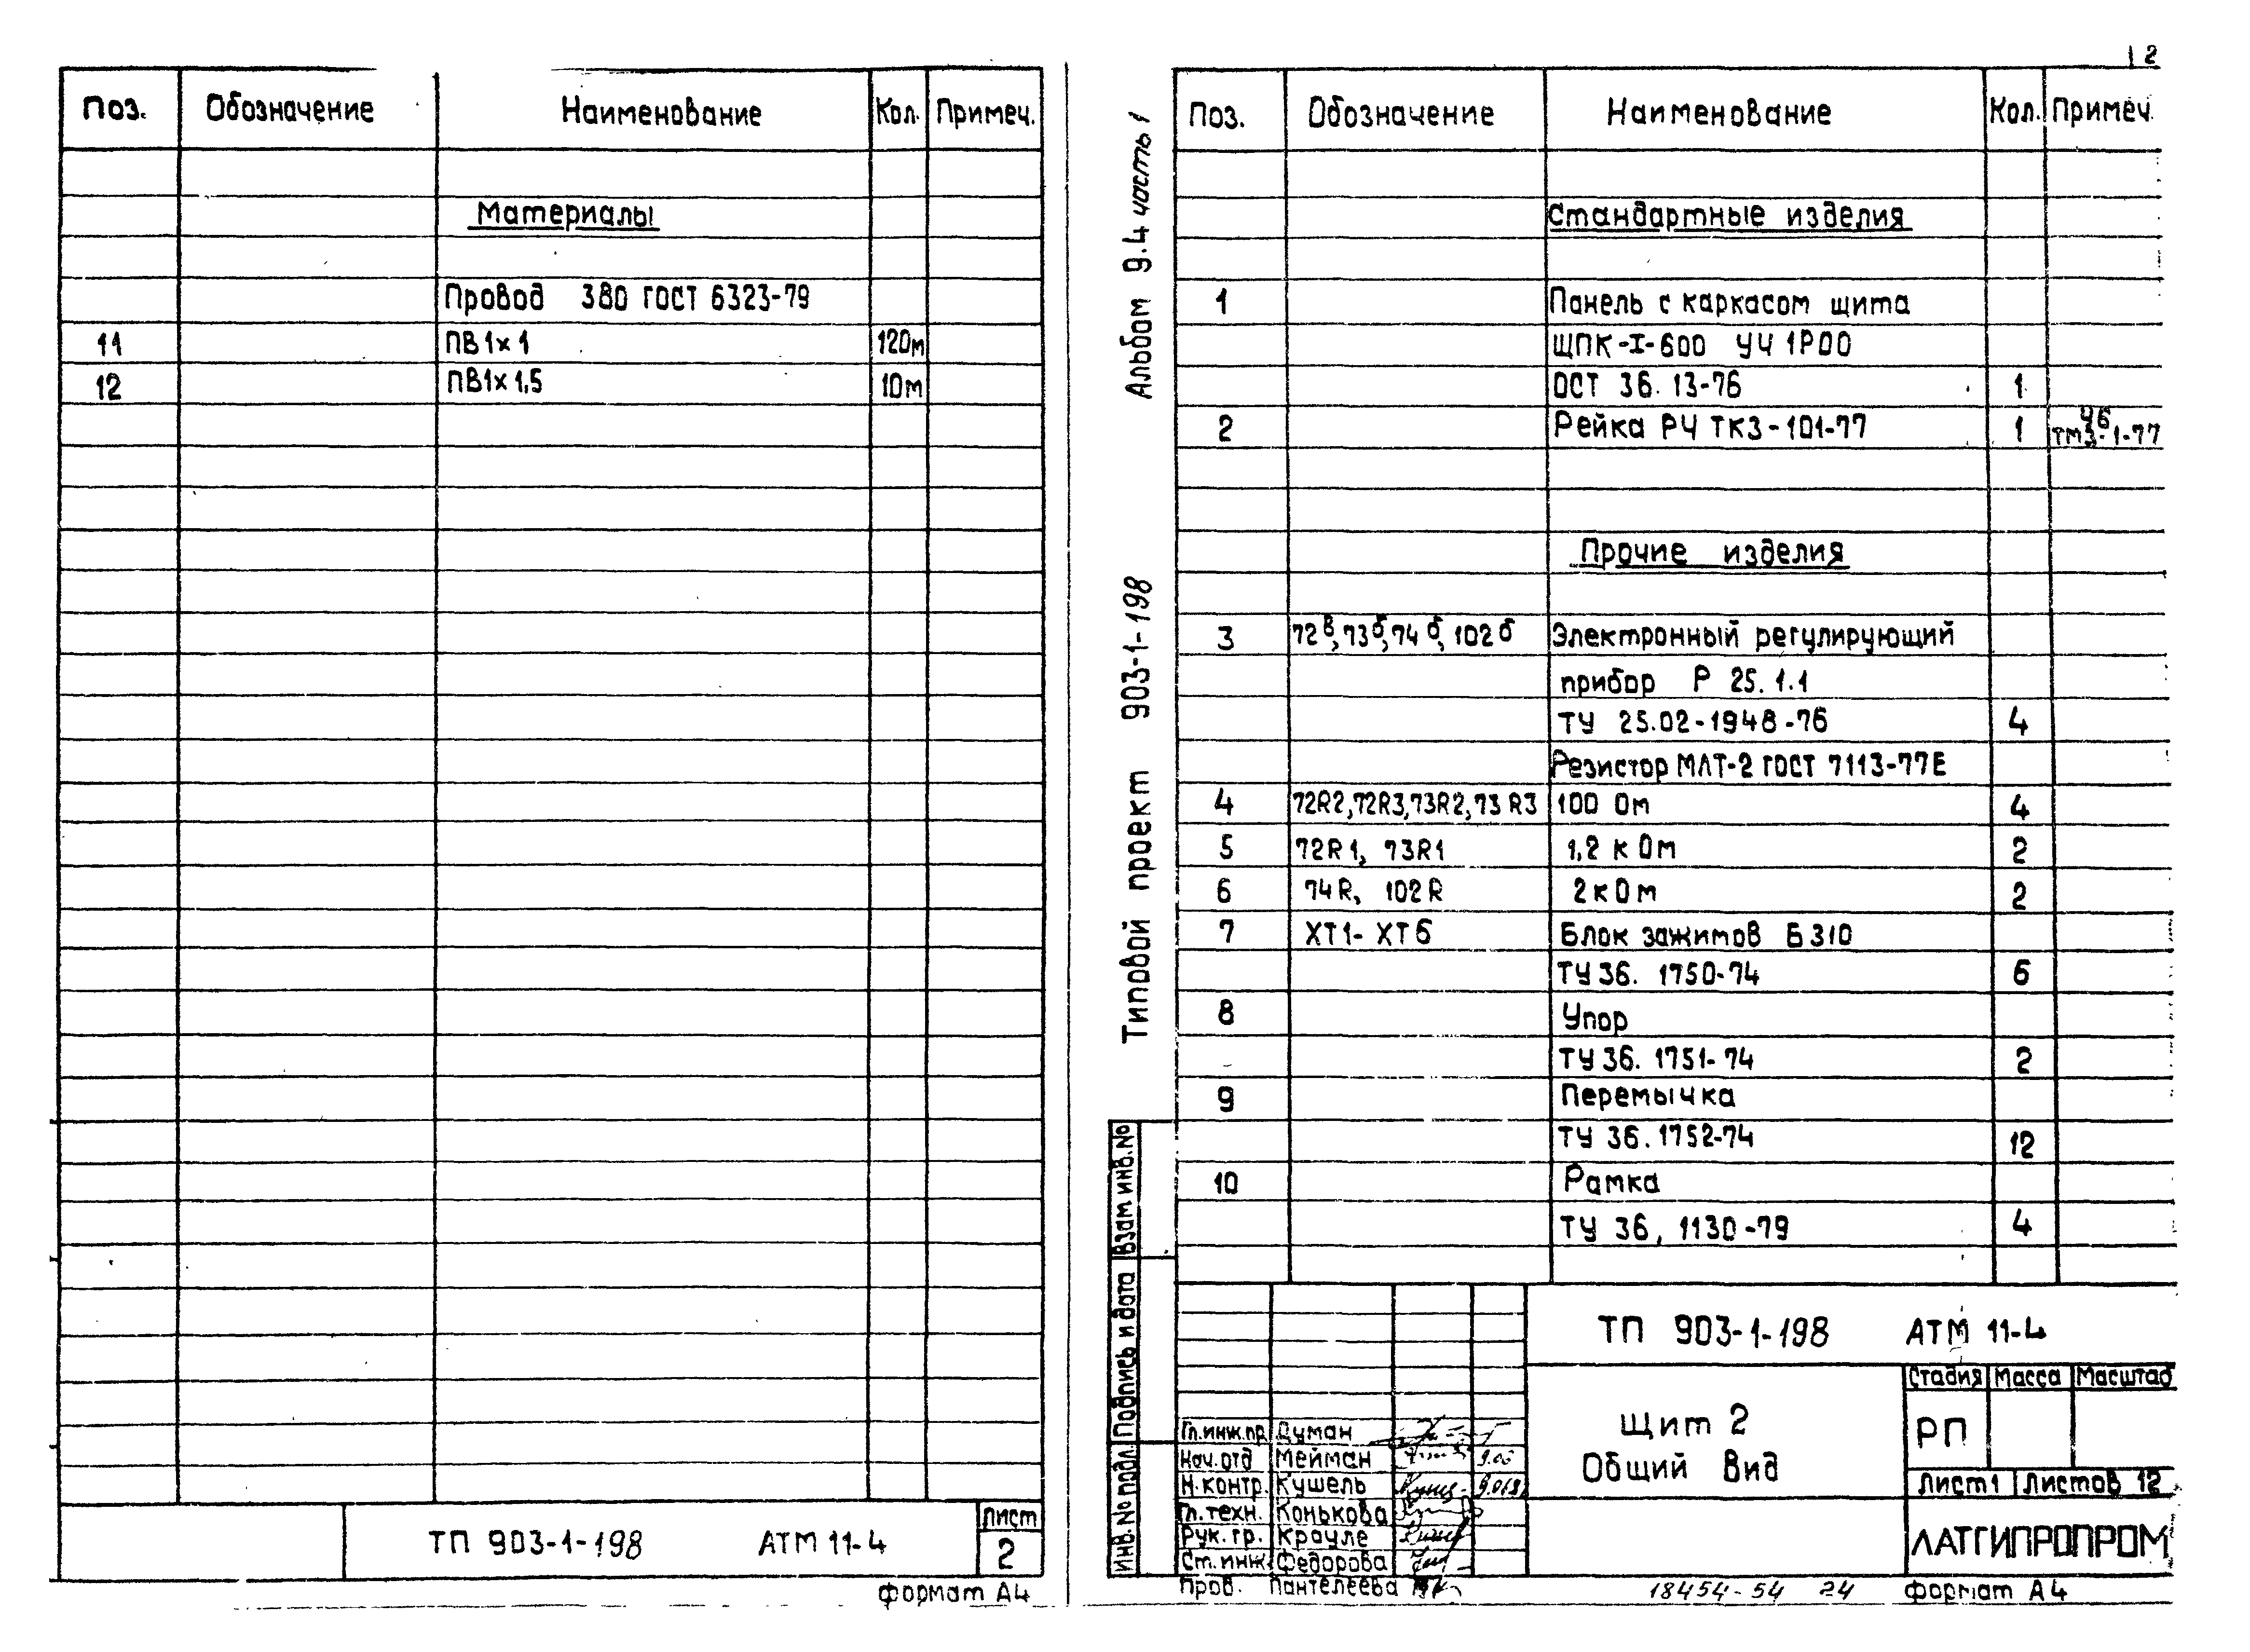 12
Поз. Обозначение Наименование Кол. Примеч.
Материалы
Провод 380 ГОСТ 6323-79
11 ПВ1х1 120м
12 ПВ1х1,5 10м
ТП 903-1-198 АТМ 11-4 Лист 2
формат А4
Альбом 9.4 часть 1
Типовой проект 903-1-198
Взам инв. №
Подпись и дата
Инв. № подл.
Поз. Обозначение Наименование Кол. Примеч.
Стандартные изделия
1 Панель с каркасом щита
ЩПК-I-600 УЧ 1Р00
ОСТ 36.13-76 1
2 Рейка РЧ ТК3-101-77 1 Ч6 ТМ3-1-77
Прочие изделия
3 72в, 73б, 74б, 102б Электронный регулирующий
прибор Р 25.1.1
ТУ 25.02-1948-76 4
Резистор МЛТ-2 ГОСТ 7113-77Е
4 72R2, 72R3, 73R2, 73R3 100 Ом 4
5 72R1, 73R1 1,2 кОм 2
6 74R, 102R 2кОм 2
7 ХТ1-ХТ6 Блок зажимов Б310
ТУ 36.1750-74 6
8 Упор
ТУ 36.1751-74 2
9 Перемычка
ТУ 36.1752-74 12
10 Рамка
ТУ 36, 1130-79 4
ТП 903-1-198 АТМ 11-4
Стадия Масса Масштаб
Щит 2
Общий вид
РП
Лист 1 Листов 12
ЛАТГИПРОПРОМ
Гл.инж.пр. Думан
Нач.отд Мейман
Н.контр. Кушель
Гл.техн. Конькова
Рук.гр. Крауле
Ст.инж. Федорова
Пров. Пантелеева
18454-54 24 формат А4